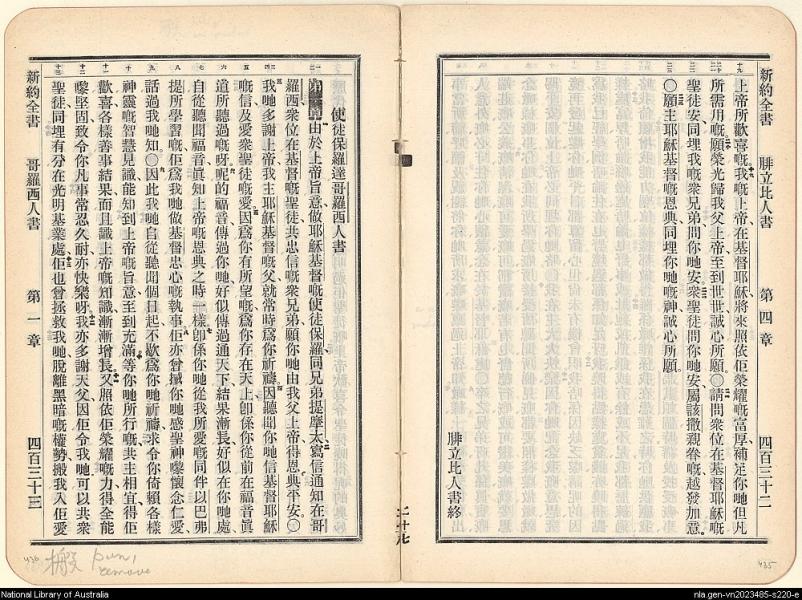 新約全書 腓立比人書 第四章 四百三十二
上帝所歡喜嘅我嘅上帝在基督耶穌將來照依佢榮耀嘅富厚補足你哋但凡
所需用嘅願榮光歸我父上帝至到世世誠心所願〇請問衆位在基督耶穌嘅
聖徒安同埋我嘅衆兄弟問你哋安衆聖徒問你哋安屬該撒親眷嘅越發加意
〇願主耶穌基督嘅恩典同埋你哋嘅神誠心所願
腓立比人書終
二十七
使徒保羅達哥羅西人書
由於上帝旨意做耶穌基督嘅使徒保羅同兄弟提摩太寫信通知在哥
羅西衆位在基督嘅聖徒共忠信嘅衆兄弟願你哋由我父上帝得恩典平安〇
我哋多謝上帝我主耶穌基督嘅父就常時爲你祈禱因聽聞你哋信基督耶穌
嘅信及愛衆聖徒嘅愛因爲你有所望嘅爲你存在天上卽係你從前在福音眞
道所聽過嘅呀呢的福音傳過你哋好似傳過通天下結果漸長好似在你哋處
自從聽聞福音眞知上帝嘅恩典之時一樣卽係你哋從我所愛嘅同伴以巴弗
提所學習嘅佢爲我哋做基督忠心嘅執事佢亦曾將你哋感聖神嚟懷念仁愛
話過我哋知〇因此我哋自從聽聞個日起不歇爲你哋祈禱求令你倚賴各樣
神靈嘅智慧見識能知到上帝嘅旨意至到充滿等你哋所行嘅共主相宜得佢
歡喜各樣善事結果而且識上帝嘅知識漸漸增長又照依佢榮耀嘅力得全能
嚟堅固致令你凡事常忍久耐亦快樂呀我亦多謝天父因佢令我哋可以共衆
聖徒同埋有分在光明基業處佢也曾拯救我哋脫離黑暗嘅權勢搬我入佢愛
新約全書 哥羅西人書 第一章 四百三十三
436 搬 pun, remove
435
National Library of Australia
nla.gen-vn2023485-s220-e